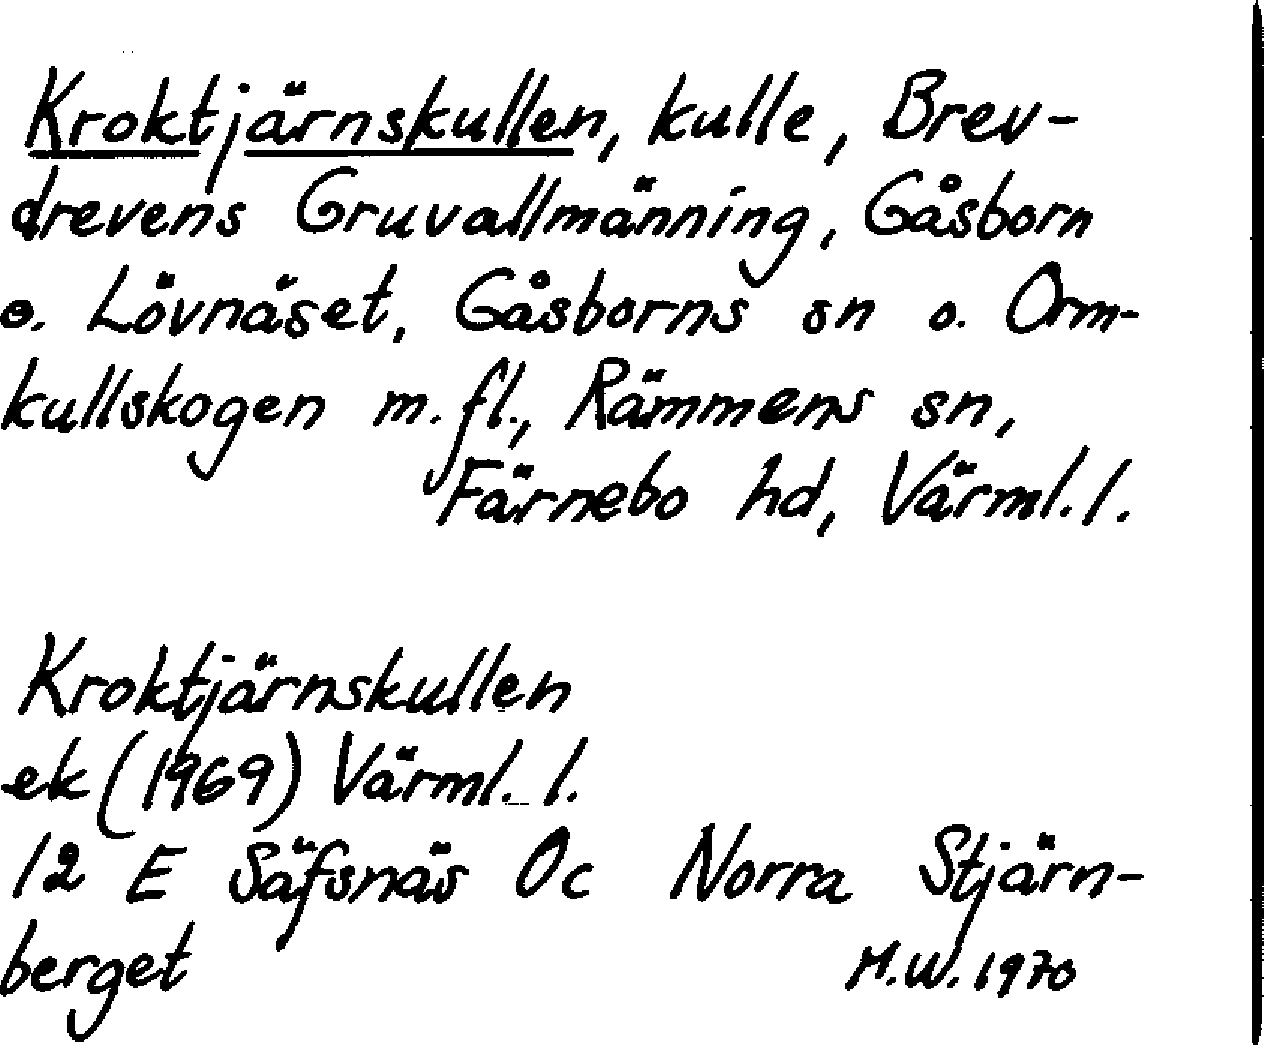 Kroktjärnskullen, kulle, Brev-
drevens Gruvallmänning, Gåsborn
o. Lövnäset, Gåsborns sn o. Orm-
kullskogen m.fl., Rämmens sn,
Färnebo hd, Värml.l.
Kroktjärnskullen
ek (1969) Värml. l.
12 E Säfsnäs Oc Norra Stjärn-
berget M.W. 1970